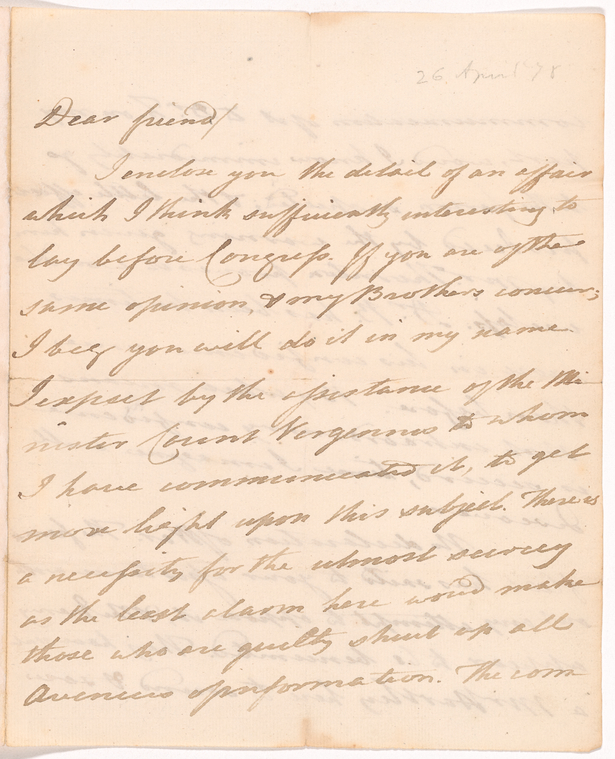 26 April 78
Dear friend
I enclose you the detail of an affair
which I think sufficiently interesting to
lay before Congress. If you are of the
same opinion, & my Brothers concur,
I beg you will do it in my name.
I expect by the assistance of the Mi-
nister Count Vergennes to whom
I have communicated it, to get
more light upon this subject. There is
a necessity for the utmost secrecy
as the least alarm here would make
those who are guilty shut up all
Avenues of information. The com